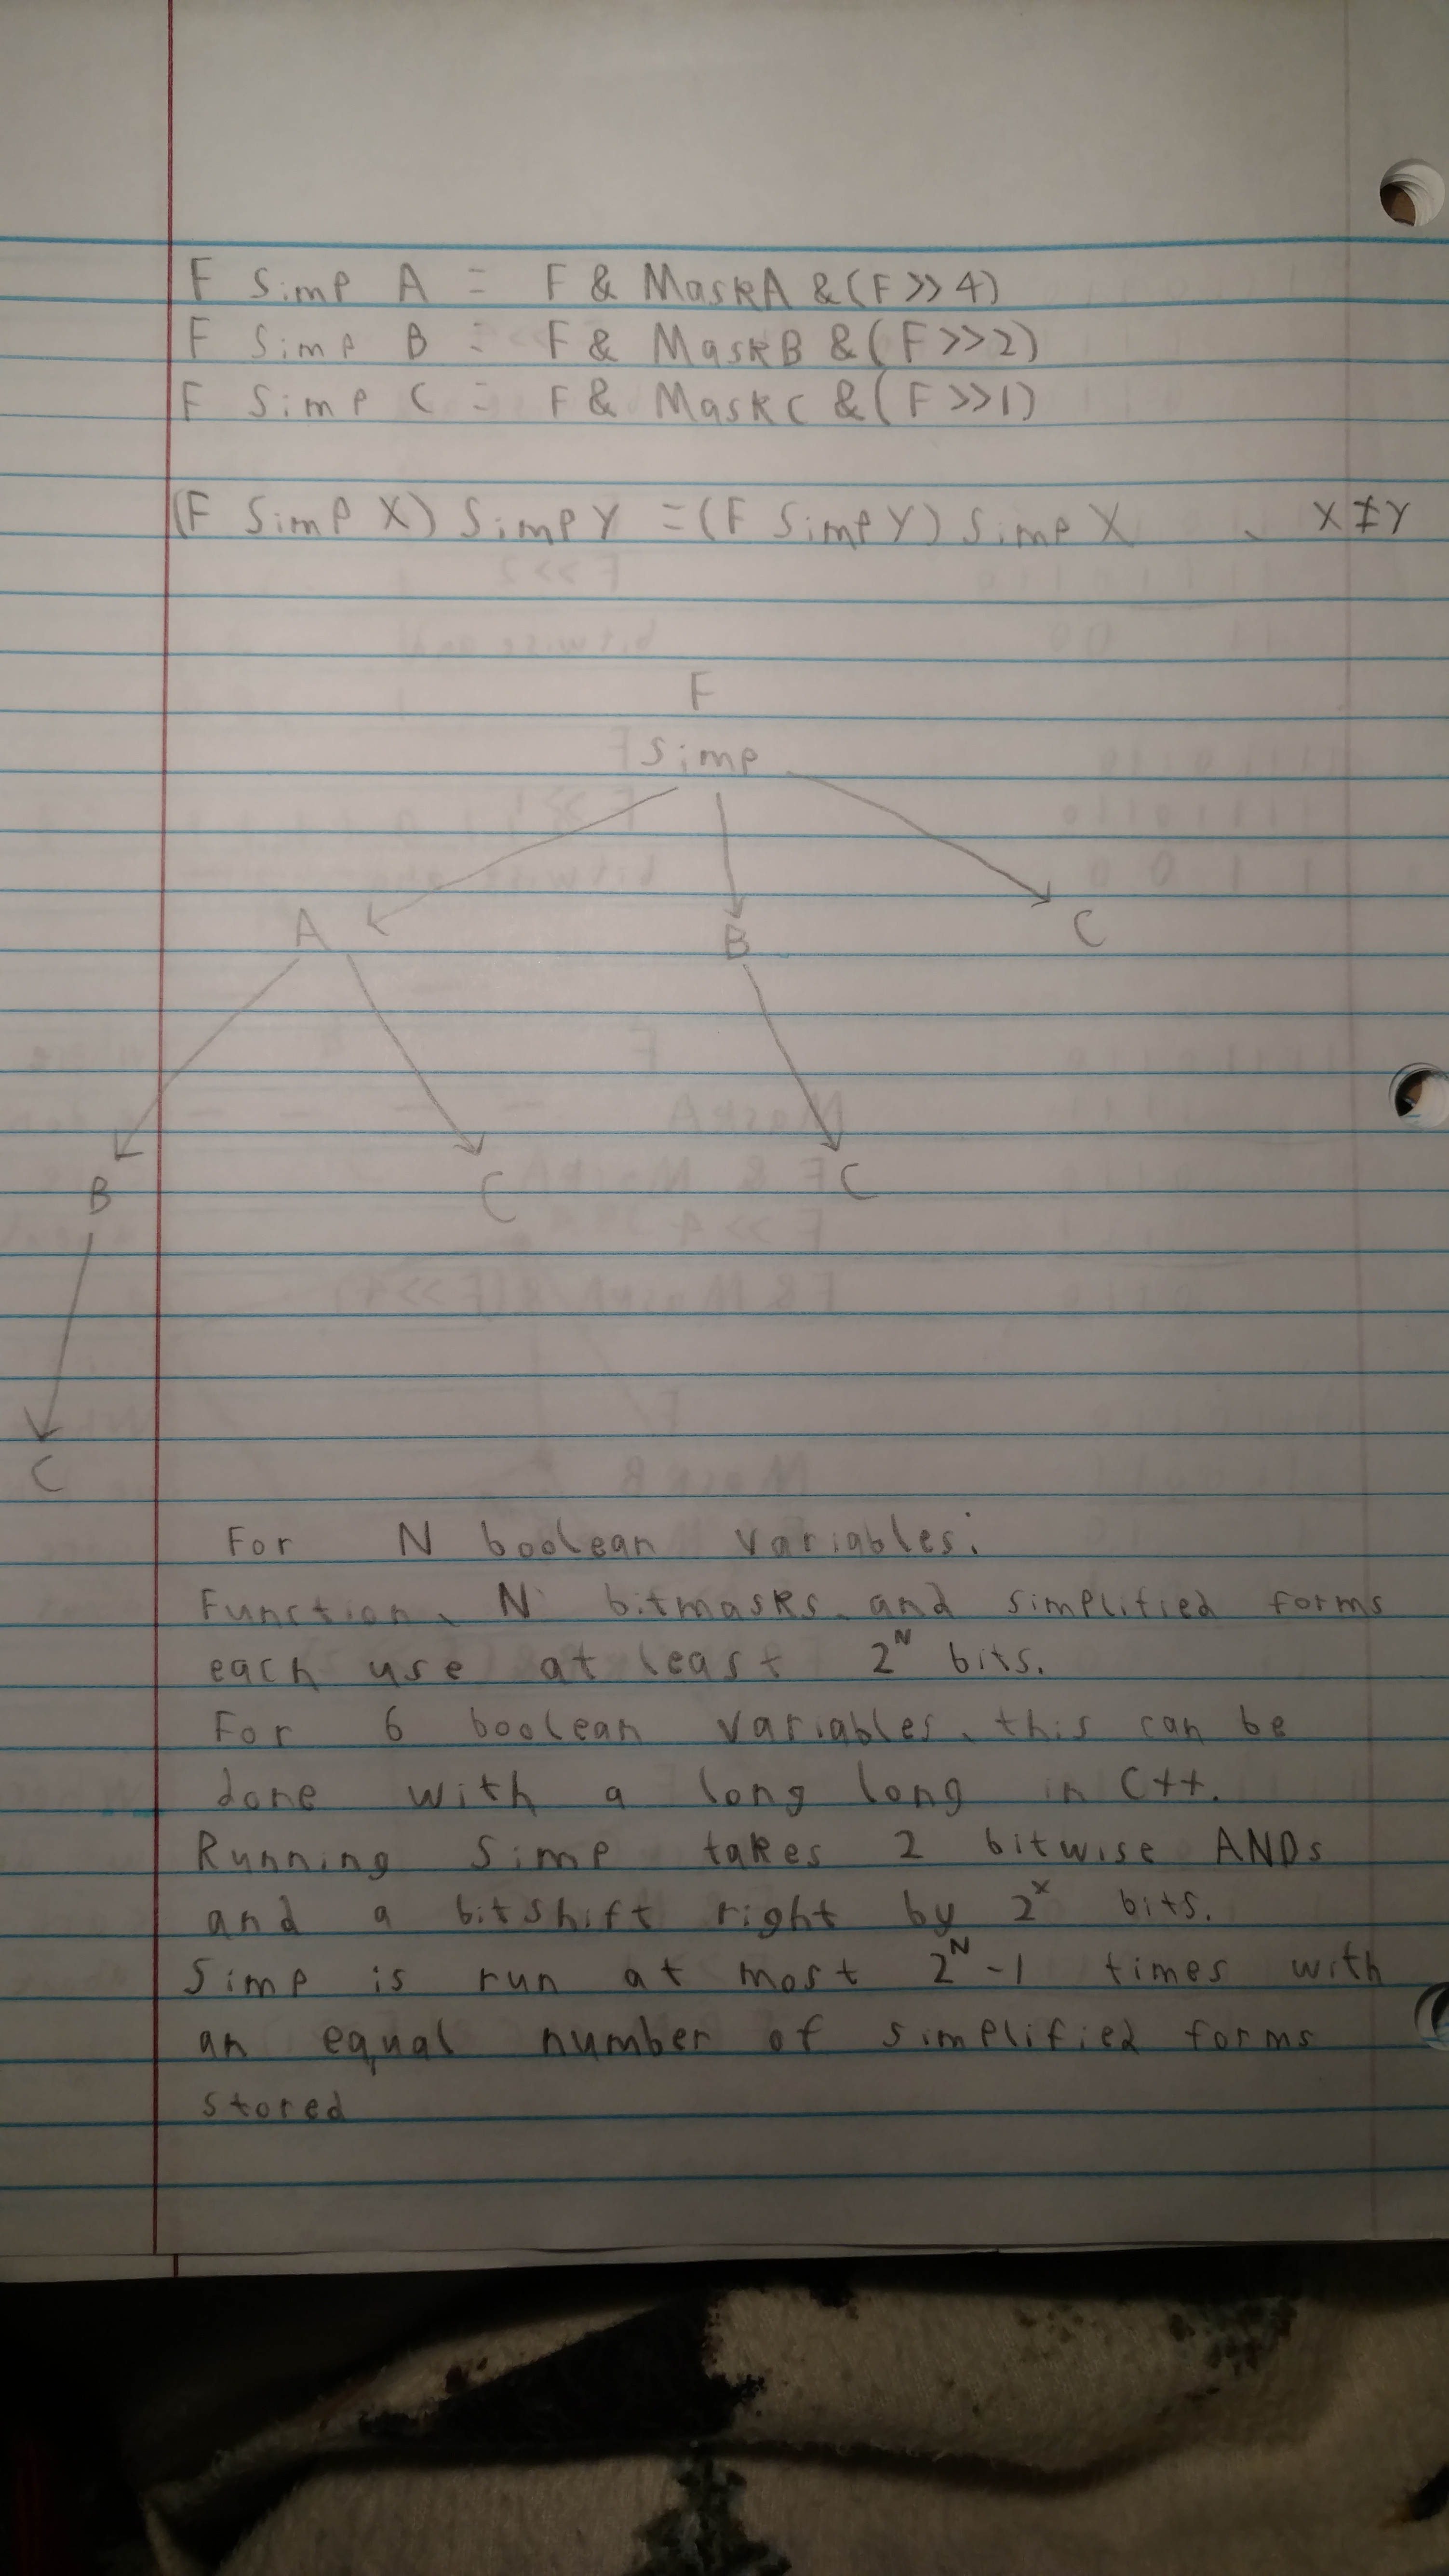 F Simp A = F & MaskA &(F>>4)
F Simp B = F & MaskB &(F>>2)
F Simp C = F & MaskC &(F>>1)
(F Simp X) Simp Y =(F Simp Y) Simp X , X≠Y
F
Simp
A B C
B C C
C
For N boolean variables:
Function, N bitmasks, and simplified forms
each use at least 2^N bits.
For 6 boolean variables, this can be
done with a long long in C++.
Running Simp takes 2 bitwise ANDs
and a bitshift right by 2^x bits.
Simp is run at most 2^N -1 times with
an equal number of simplified forms
stored